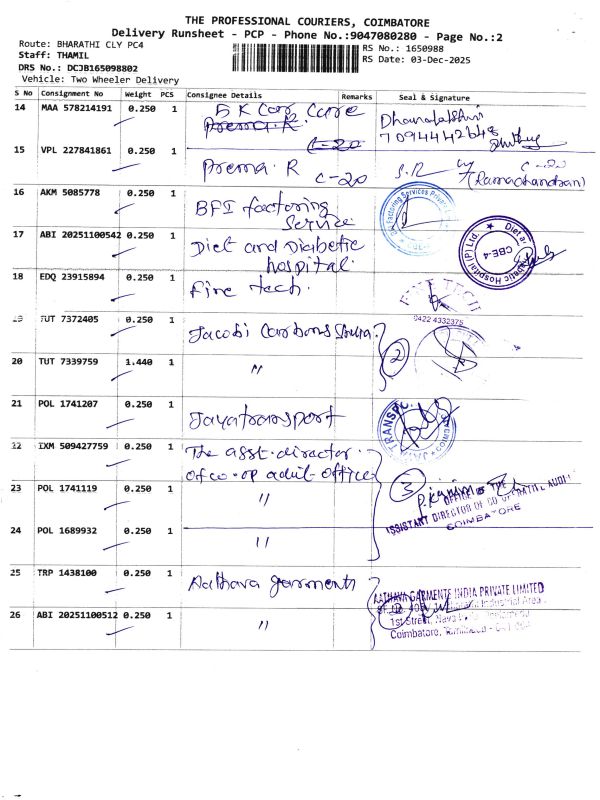 THE PROFESSIONAL COURIERS, COIMBATORE
Delivery Runsheet - PCP - Phone No.:9047080280 - Page No.:2
Route: BHARATHI CLY PC4
Staff: THAMIL
DRS No.: DCJB165098802
Vehicle: Two Wheeler Delivery
RS No.: 1650988
RS Date: 03-Dec-2025
S No Consignment No Weight PCS Consignee Details Remarks Seal & Signature
14 MAA 578214191 0.250 1 S K Car Care
Prema. R. Dhanalakshmi
C-20 7094442648
15 VPL 227841861 0.250 1 Prema. R C-20 S.R C-20
(Ramachandran)
16 AKM 5085778 0.250 1 BFI factoring
Service
17 ABI 20251100542 0.250 1 Diet and Diabetic
hospital. CBE-4
18 EDQ 23915894 0.250 1 Fine tech. FINE TECH
0422 4332375
19 TUT 7372405 0.250 1 Jacobi Carbons India. 2
20 TUT 7339759 1.440 1 "
21 POL 1741207 0.250 1 Jayatransport
22 IXM 509427759 0.250 1 The asst. director.
of co-op adult office 3
23 POL 1741119 0.250 1 "
OFFICE OF THE
ASSISTANT DIRECTOR OF CO OPERATIVE AUDIT
COIMBATORE
24 POL 1689932 0.250 1 "
25 TRP 1438100 0.250 1 Aathava garments
AATHAVA GARMENTS INDIA PRIVATE LIMITED
26 ABI 20251100512 0.250 1 "
Industrial Area
1st Street,
Coimbatore, Tamilnadu